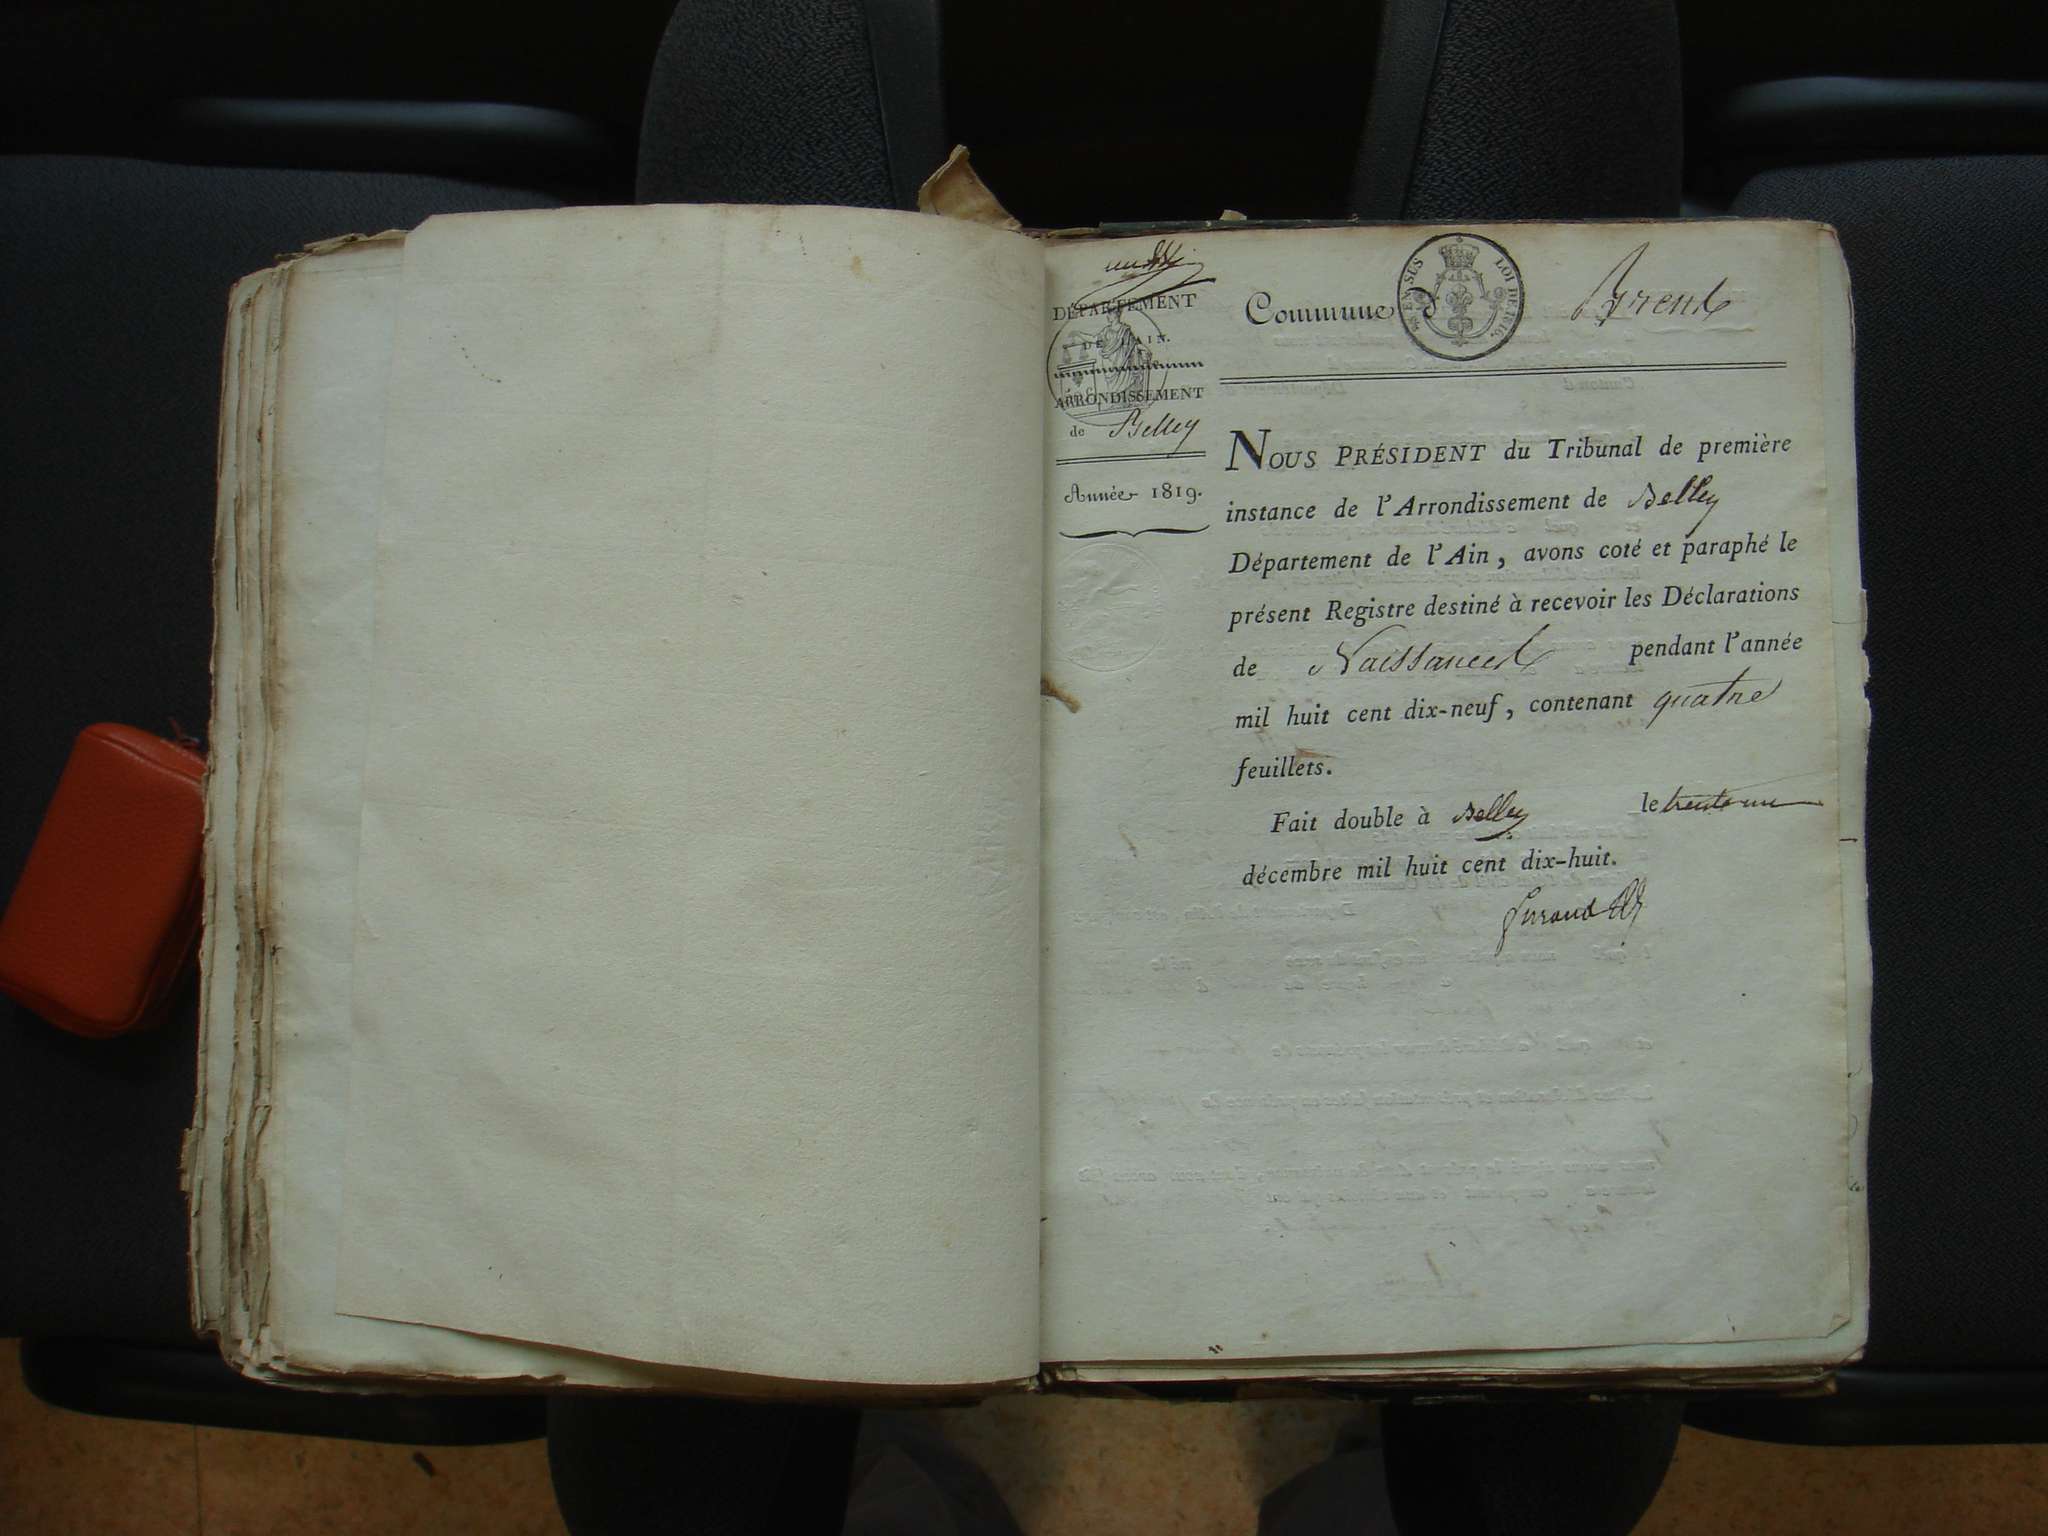 DÉPARTEMENT
DE L'AIN.
ARRONDISSEMENT
de Belley
Année 1819.
Commune d
EN SUS LOI DE 1816.
NOUS PRÉSIDENT du Tribunal de première
instance de l'Arrondissement de Belley
Département de l'Ain, avons coté et paraphé le
présent Registre destiné à recevoir les Déclarations
de Naissances pendant l'année
mil huit cent dix-neuf, contenant quatre
feuillets.
Fait double à Belley le trente un
décembre mil huit cent dix-huit.